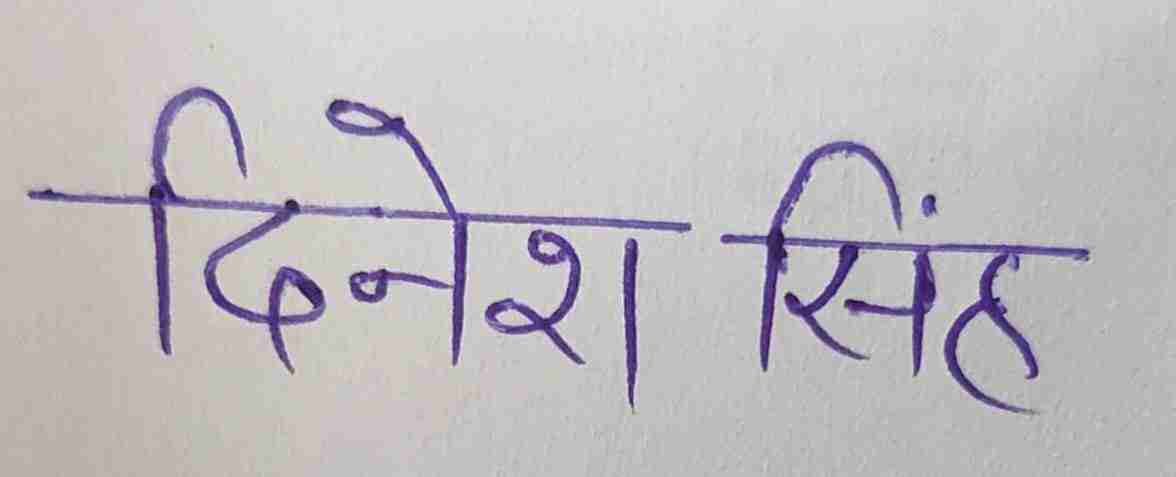 दिनेश सिंह